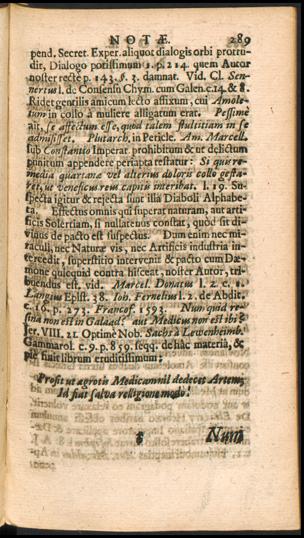 NOTÆ. 289
pend. Secret. Exper. aliquot dialogis orbi protru-
dit, Dialogo potissimum 1. p. 214. quem Autor
noster recte p. 143. §. 3. damnat. Vid. Cl. Sen-
nertius l. de Consensu Chym. cum Galen. c. 14. & 8.
Ridet gentilis amicum lecto affixum, cui Amole-
tum in collo à muliere alligatum erat. Pessime
ait, se affectum esse, quod talem stultitiam in se
admisisset. Plutarch. in Pericle. Am. Marcell.
sub Constantio Imperat. prohibitum & ut delictum
punitum appendere periapta testatur: Si quis re-
media quartanæ vel alterius doloris collo gesta-
ret, ut veneficus reus capitis interibat. l. 19. Su-
specta igitur & rejecta sunt illa Diaboli Alphabe-
ta. Effectus omnis qui superat naturam, aut arti-
ficis Solertiam, si nullatenus constat, quòd sit di-
vinus ee pacto est suspectus. Dum enim nec mi-
raculi, nec Naturæ vis, nec Artificis industria in-
tercedit, superstitio intervenit & pacto cum Dæ-
mone quicquid contra hisceat, noster Autor, tri-
buendus est. vid. Marcel. Donatus l. 2. c. 1.
Langius Epist. 38. Ioh. Fernelius l. 2. de Abdit.
c. 16. p. 273. Francof. 1593. Num quid resi-
sina non est in Galaad? aut Medicus non est ibi?
Jer. VIII. 22. Optimè Nob. Sachs à Lewenheimb.
Gammarol. c. 9. p. 859. seqq. de hâc materiâ, &
piè fluit librum eruditissimum;
Prosit ut ægrotis Medicamnil dedecet Artem,
Id fiat salva religione modo!
Num